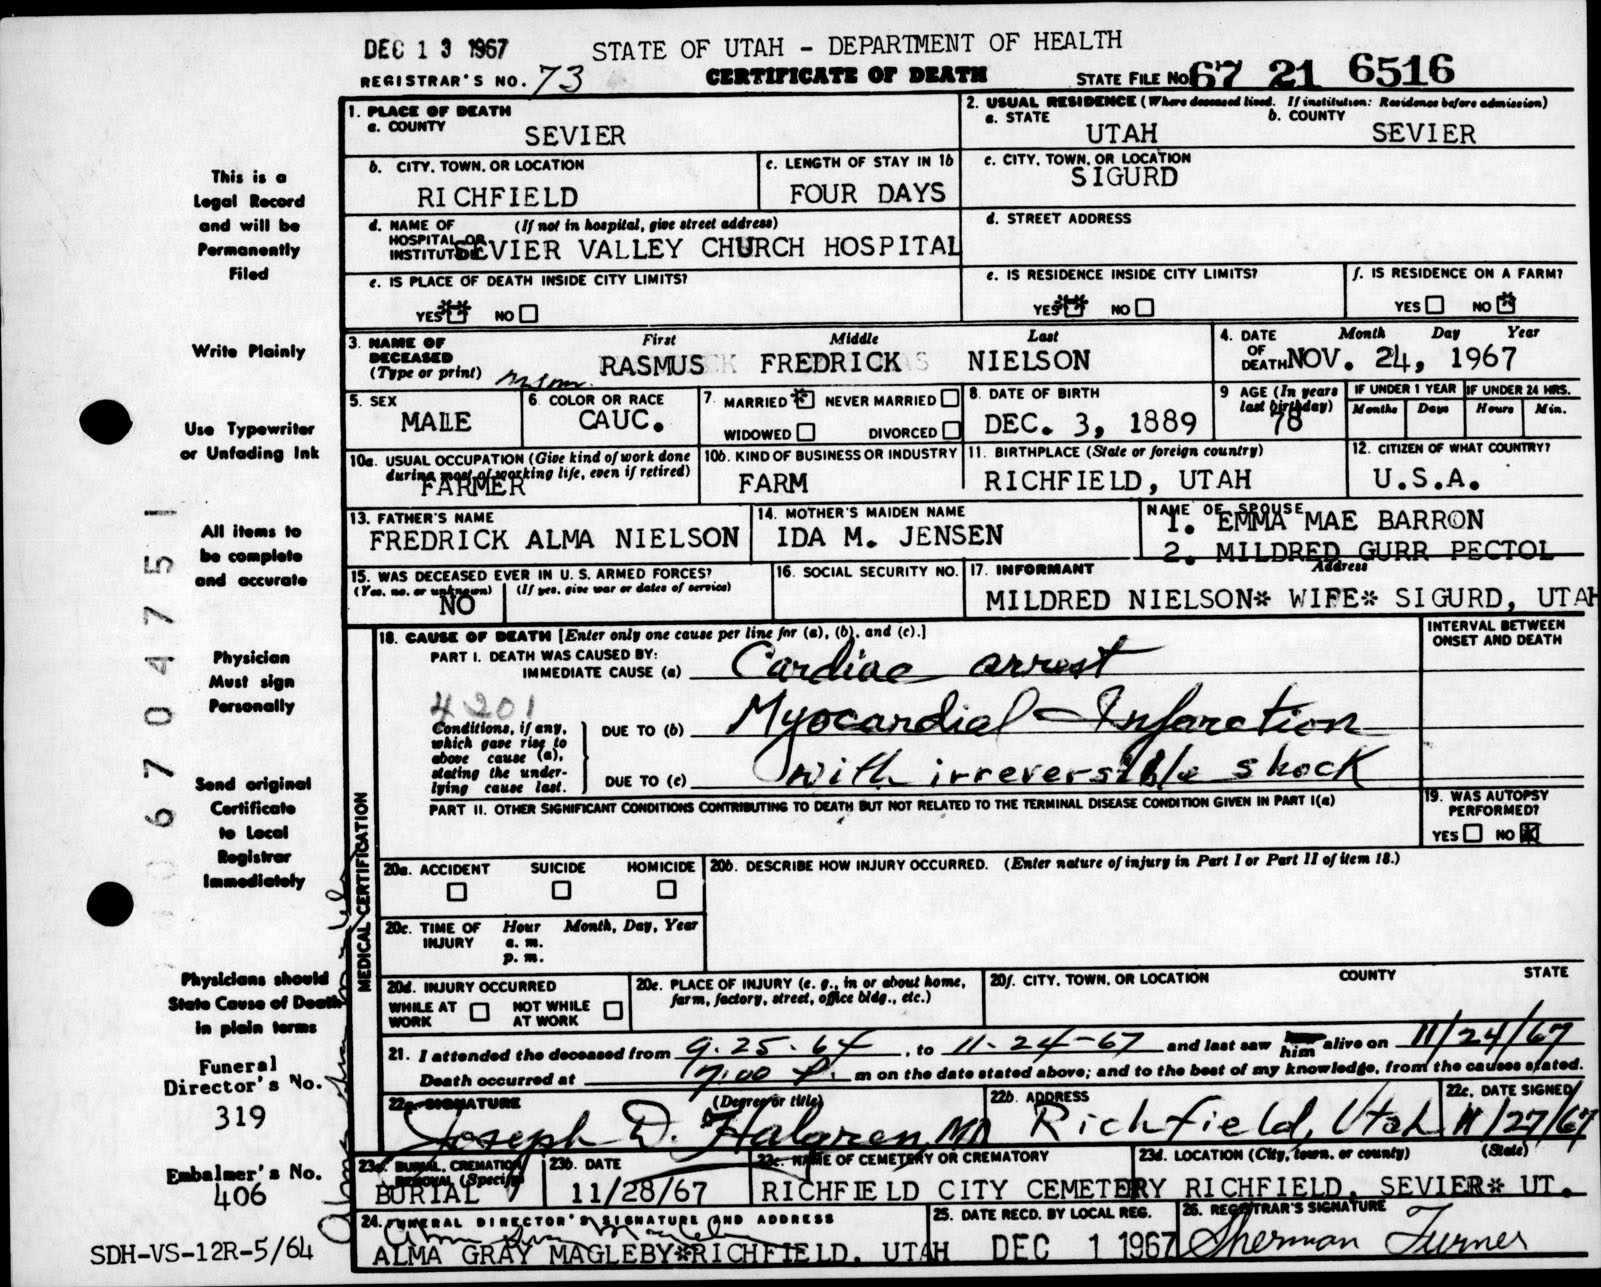 DEC 13 1967
STATE OF UTAH - DEPARTMENT OF HEALTH
REGISTRAR'S NO. 73
CERTIFICATE OF DEATH
STATE FILE NO. 67 21 6516
This is a
Legal Record
and will be
Permanently
Filed
Write Plainly
Use Typewriter
or Unfading Ink
All items to
be complete
and accurate
Physician
Must sign
Personally
Send original
Certificate
to Local
Registrar
Immediately
Physicians should
State Cause of Death
in plain terms
Funeral
Director's No.
319
Embalmer's No.
406
SDH-VS-12R-5/64
0670475
1. PLACE OF DEATH
a. COUNTY
SEVIER
2. USUAL RESIDENCE (Where deceased lived. If institution: Residence before admission)
a. STATE
UTAH
b. COUNTY
SEVIER
b. CITY, TOWN, OR LOCATION
RICHFIELD
c. LENGTH OF STAY IN 1b
FOUR DAYS
c. CITY, TOWN, OR LOCATION
SIGURD
d. NAME OF HOSPITAL OR INSTITUTION (If not in hospital, give street address)
SEVIER VALLEY CHURCH HOSPITAL
d. STREET ADDRESS
e. IS PLACE OF DEATH INSIDE CITY LIMITS?
YES NO
e. IS RESIDENCE INSIDE CITY LIMITS?
YES NO
f. IS RESIDENCE ON A FARM?
YES NO
3. NAME OF DECEASED (Type or print)
First Middle Last
RASMUS FREDRICK NIELSON
4. DATE OF DEATH
Month Day Year
NOV. 24, 1967
5. SEX
MALE
6. COLOR OR RACE
CAUC.
7. MARRIED NEVER MARRIED
WIDOWED DIVORCED
8. DATE OF BIRTH
DEC. 3, 1889
9 AGE (In years last birthday)
78
IF UNDER 1 YEAR
Months Days
IF UNDER 24 HRS.
Hours Min.
10a. USUAL OCCUPATION (Give kind of work done during most of working life, even if retired)
FARMER
10b. KIND OF BUSINESS OR INDUSTRY
FARM
11. BIRTHPLACE (State or foreign country)
RICHFIELD, UTAH
12. CITIZEN OF WHAT COUNTRY?
U.S.A.
13. FATHER'S NAME
FREDRICK ALMA NIELSON
14. MOTHER'S MAIDEN NAME
IDA M. JENSEN
NAME OF SPOUSE
1. EMMA MAE BARRON
2. MILDRED GURR PECTOL
15. WAS DECEASED EVER IN U. S. ARMED FORCES?
(Yes, no, or unknown) (If yes, give war or dates of service)
NO
16. SOCIAL SECURITY NO.
17. INFORMANT Address
MILDRED NIELSON* WIFE* SIGURD, UTAH
MEDICAL CERTIFICATION
18. CAUSE OF DEATH [Enter only one cause per line for (a), (b), and (c).]
INTERVAL BETWEEN ONSET AND DEATH
PART I. DEATH WAS CAUSED BY:
IMMEDIATE CAUSE (a) Cardiac arrest
4201
Conditions, if any, which gave rise to above cause (a), stating the underlying cause last.
DUE TO (b) Myocardial Infarction
DUE TO (c) with irreversible shock
PART II. OTHER SIGNIFICANT CONDITIONS CONTRIBUTING TO DEATH BUT NOT RELATED TO THE TERMINAL DISEASE CONDITION GIVEN IN PART I(a)
19. WAS AUTOPSY PERFORMED?
YES NO
20a. ACCIDENT SUICIDE HOMICIDE
20b. DESCRIBE HOW INJURY OCCURRED. (Enter nature of injury in Part I or Part II of item 18.)
20c. TIME OF INJURY Hour Month, Day, Year
a. m.
p. m.
20d. INJURY OCCURRED
WHILE AT WORK NOT WHILE AT WORK
20e. PLACE OF INJURY (e. g., in or about home, farm, factory, street, office bldg., etc.)
20f. CITY, TOWN, OR LOCATION COUNTY STATE
21. I attended the deceased from 9.25.64, to 11-24-67 and last saw him alive on 11/24/67
Death occurred at 7:00 P. m on the date stated above; and to the best of my knowledge, from the causes stated.
22a. SIGNATURE (Degree or title)
Joseph D. Halgren, MD
22b. ADDRESS
Richfield, Utah
22c. DATE SIGNED
11/27/67
23a. BURIAL, CREMATION, REMOVAL (Specify)
BURIAL
23b. DATE
11/28/67
23c. NAME OF CEMETERY OR CREMATORY
RICHFIELD CITY CEMETERY
23d. LOCATION (City, town, or county) (State)
RICHFIELD, SEVIER* UT.
24. FUNERAL DIRECTOR'S SIGNATURE AND ADDRESS
ALMA GRAY MAGLEBY*RICHFIELD, UTAH
25. DATE RECD. BY LOCAL REG.
DEC 1 1967
26. REGISTRAR'S SIGNATURE
Sherman Turner